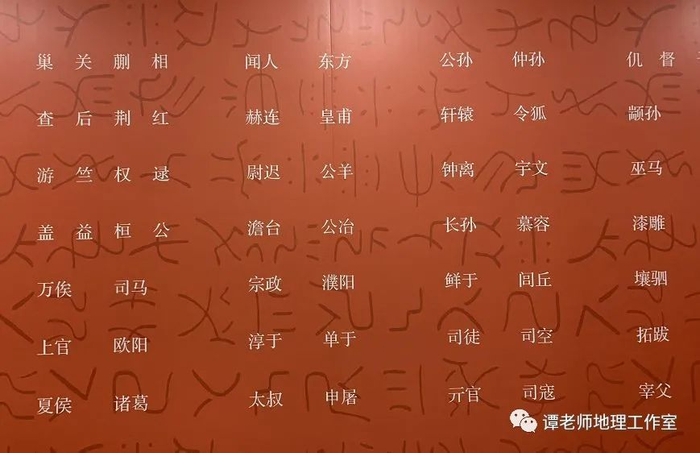 巢 关 蒯 相 闻人 东方 公孙 仲孙 仉 督
查 后 荆 红 赫连 皇甫 轩辕 令狐 颛孙
游 竺 权 逯 尉迟 公羊 钟离 宇文 巫马
盖 益 桓 公 澹台 公冶 长孙 慕容 漆雕
万俟 司马 宗政 濮阳 鲜于 闾丘 壤驷
上官 欧阳 淳于 单于 司徒 司空 拓跋
夏侯 诸葛 太叔 申屠 亓官 司寇 宰父
谭老师地理工作室